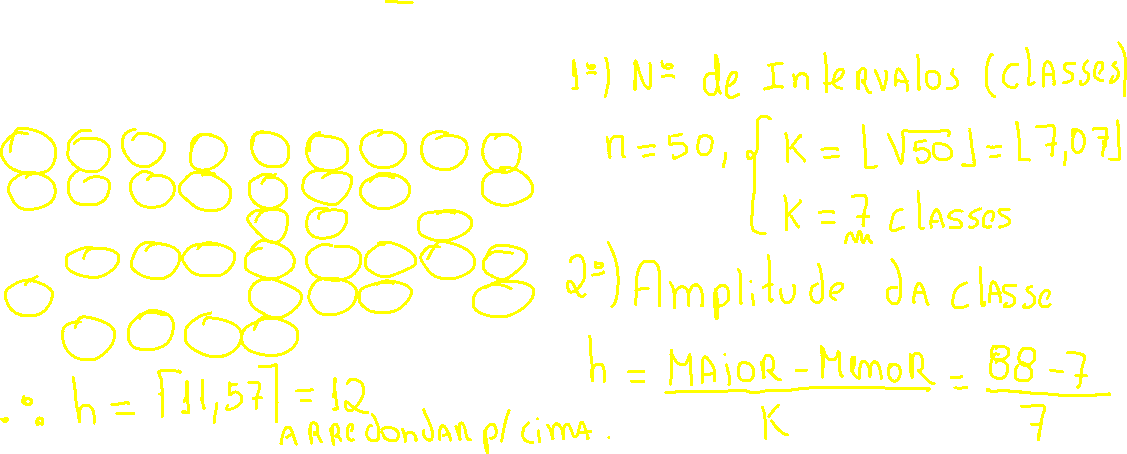 1º) Nº de Intervalos (classes)
n = 50, { K = ⌊√50⌋ = ⌊7,07⌋
K = 7 classes
2º) Amplitude da classe
h = MAIOR - MENOR / K = 88 - 7 / 7
∴ h = ⌈11,57⌉ = 12
ARREDONDAR p/ cima.